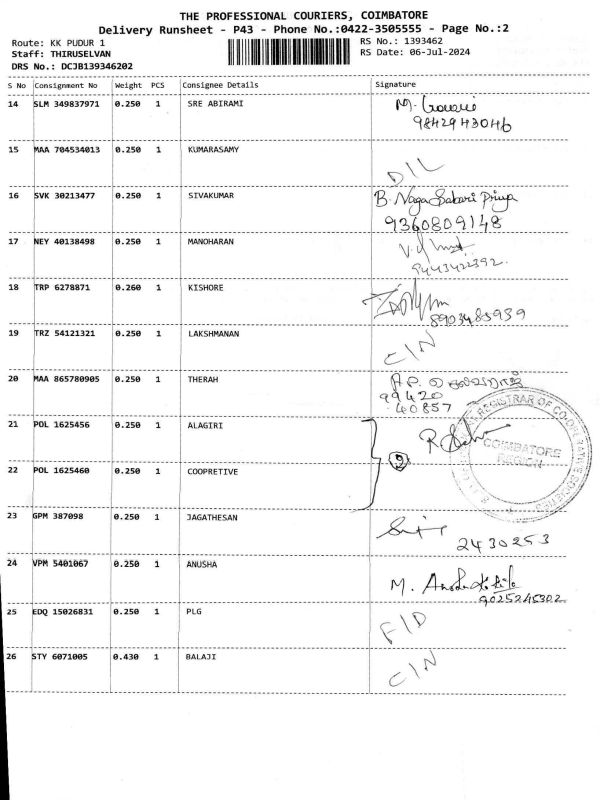 THE PROFESSIONAL COURIERS, COIMBATORE
Delivery Runsheet - P43 - Phone No.:0422-3505555 - Page No.:2
Route: KK PUDUR 1 RS No.: 1393462
Staff: THIRUSELVAN RS Date: 06-Jul-2024
DRS No.: DCJB139346202
S No Consignment No Weight PCS Consignee Details Signature
14 SLM 349837971 0.250 1 SRE ABIRAMI M.
9842943046
15 MAA 704534013 0.250 1 KUMARASAMY
D/L
16 SVK 30213477 0.250 1 SIVAKUMAR B. Naga Sabari Priya
9360809148
17 NEY 40138498 0.250 1 MANOHARAN
9443422392.
18 TRP 6278871 0.260 1 KISHORE
8903485939
19 TRZ 54121321 0.250 1 LAKSHMANAN
C/N
20 MAA 865780905 0.250 1 THERAH
99420
40857
21 POL 1625456 0.250 1 ALAGIRI
REGISTRAR OF CO-OPERATIVE SOCIETIES
COIMBATORE
REGION
22 POL 1625460 0.250 1 COOPRETIVE
23 GPM 387098 0.250 1 JAGATHESAN
2430253
24 VPM 5401067 0.250 1 ANUSHA M.
9025245302
25 EDQ 15026831 0.250 1 PLG
F/D
26 STY 6071005 0.430 1 BALAJI
C/N